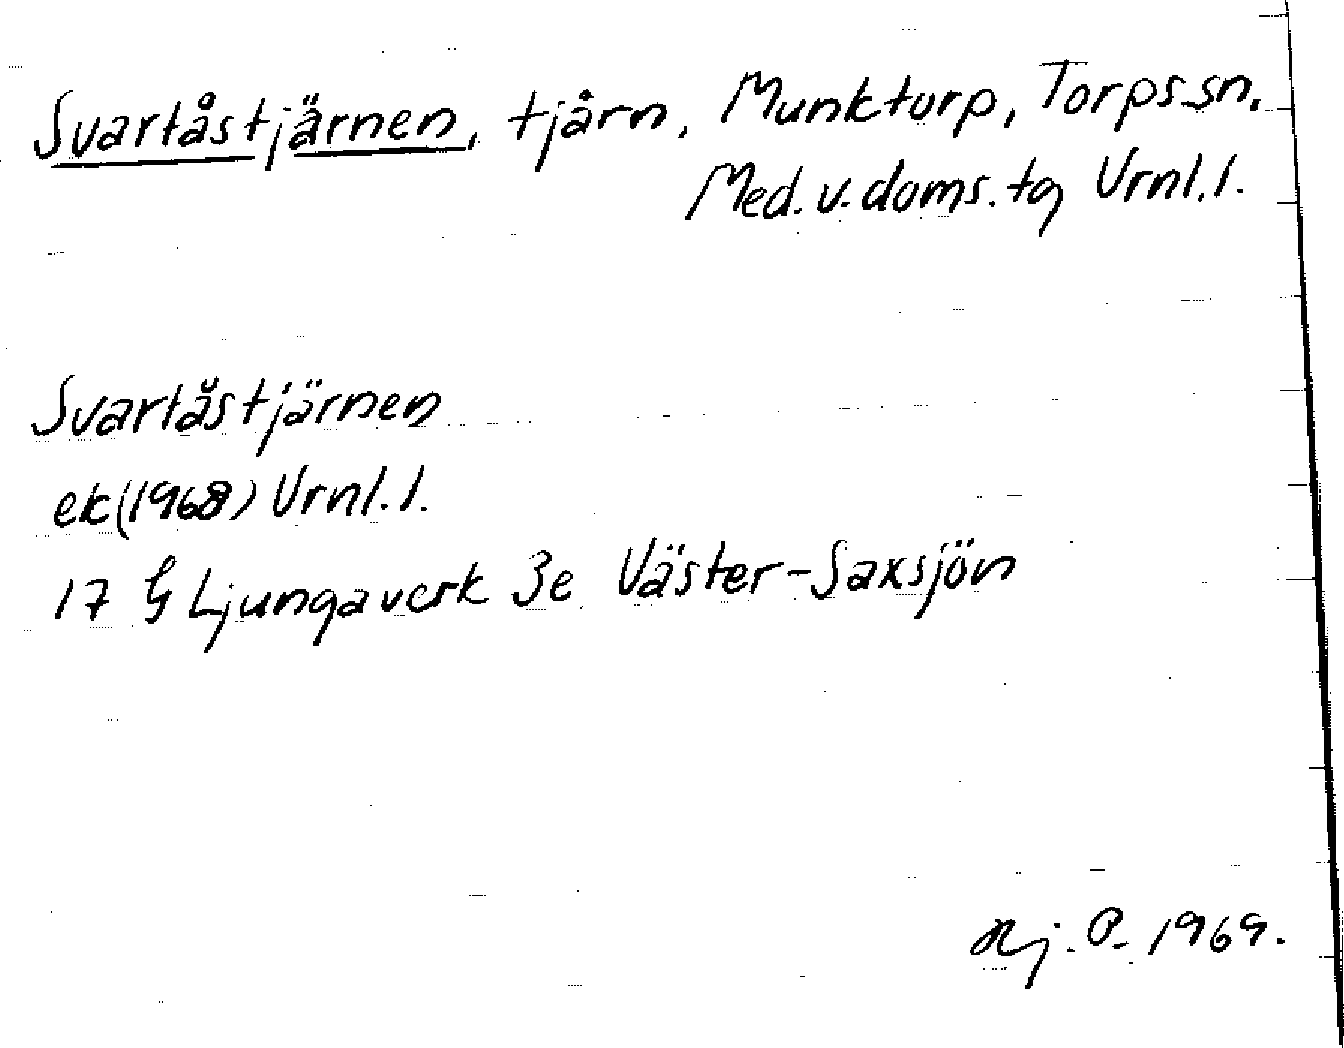 Svartåstjärnen, tjärn, Munktorp, Torps sn.
Med. v. doms. tg Vrnl. l.
Svartåstjärnen
ek (1968) Vrnl. l.
17 G Ljungaverk 3e Väster-Saxsjön
Hj. P. 1969.